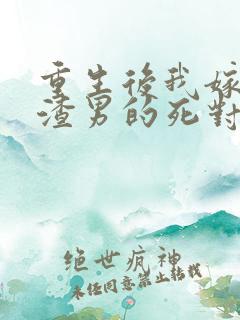 重生後我嫁
渣男的死對
絕世疯神
未经同意禁止转载